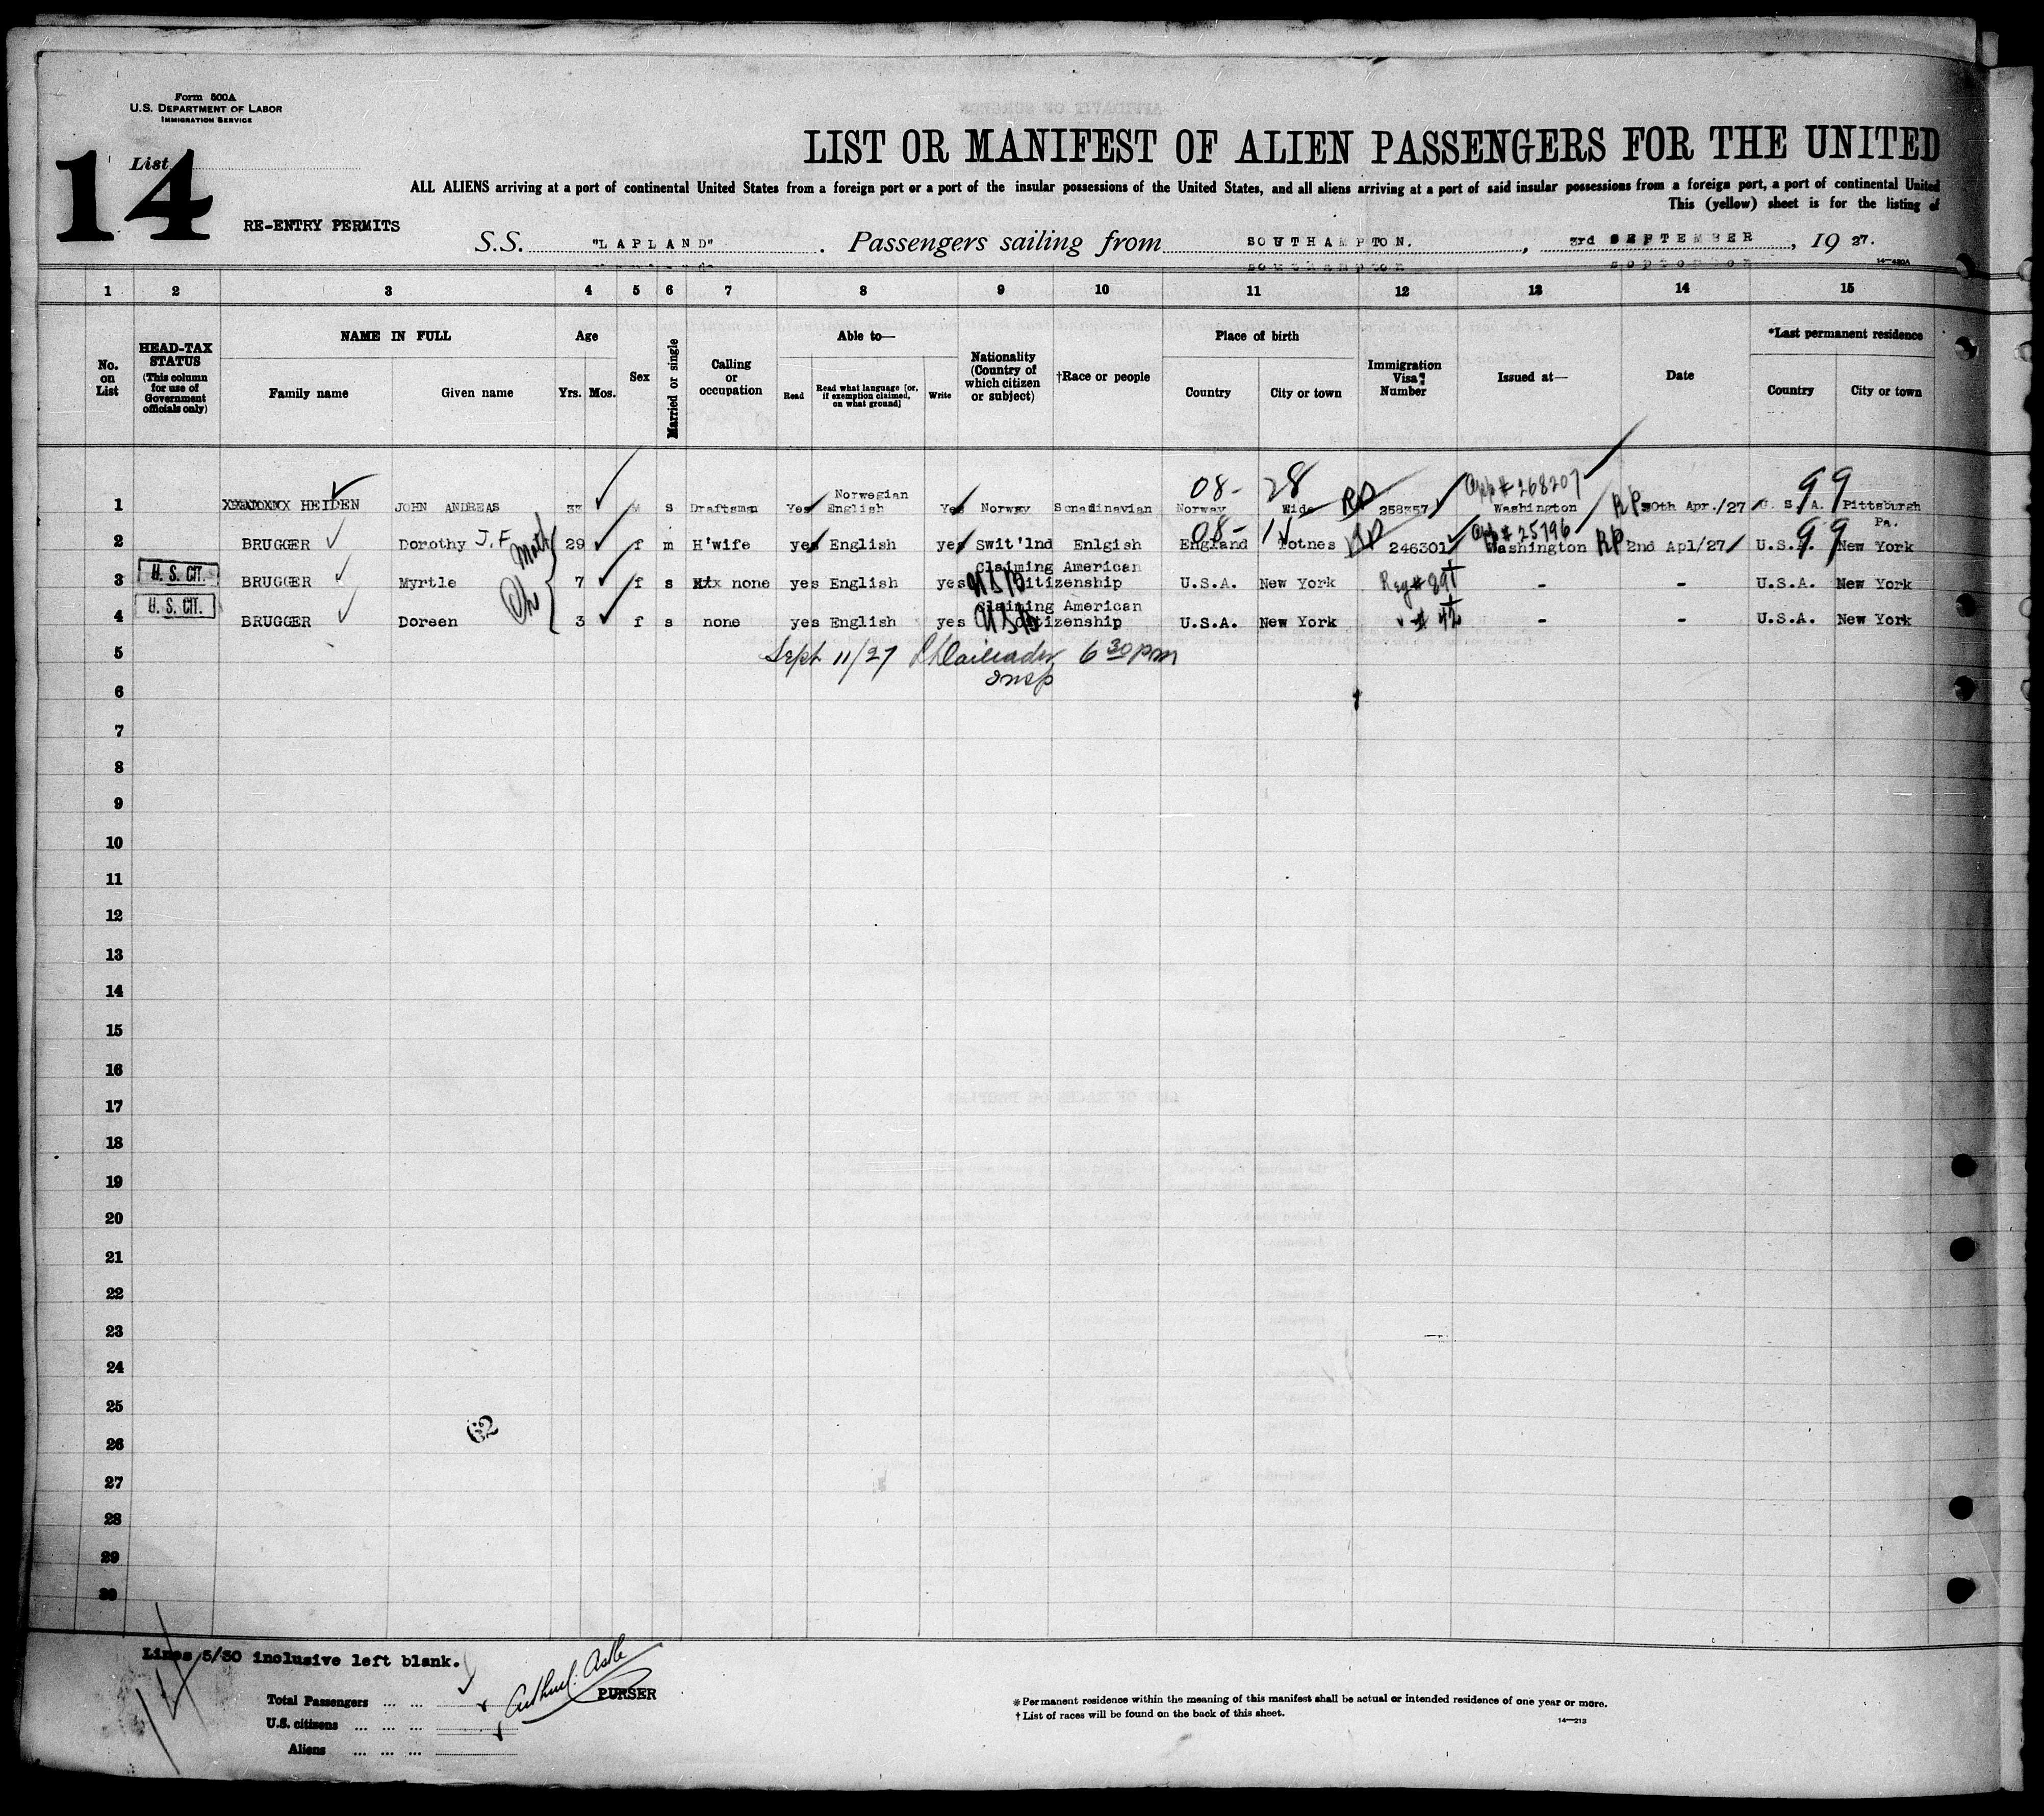 Form 500A
U.S. DEPARTMENT OF LABOR
IMMIGRATION SERVICE
List 14
LIST OR MANIFEST OF ALIEN PASSENGERS FOR THE UNITED
ALL ALIENS arriving at a port of continental United States from a foreign port or a port of the insular possessions of the United States, and all aliens arriving at a port of said insular possessions from a foreign port, a port of continental United
This (yellow) sheet is for the listing of
RE-ENTRY PERMITS
S.S. "LAPLAND". Passengers sailing from SOUTHAMPTON., 3rd SEPTEMBER, 19 27.
14—420A
1 2 3 4 5 6 7 8 9 10 11 12 13 14 15
No. on List
HEAD-TAX STATUS (This column for use of Government officials only)
NAME IN FULL Family name Given name
Age Yrs. Mos.
Sex
Married or single
Calling or occupation
Able to— Read Read what language [or, if exemption claimed, on what ground] Write
Nationality (Country of which citizen or subject)
†Race or people
Place of birth Country City or town
Immigration Visa Number
Issued at—
Date
*Last permanent residence Country City or town
08- 28 App # 268207 99
1 HEIDEN JOHN ANDREAS 33 M s Draftsman Yes Norwegian English Yes Norway Scnadinavian Norway Eide RP 258357 Washington RP 30th Apr./27 U.S.A. Pittsburgh Pa.
08- 11 App # 25796 99
2 BRUGGER Dorothy J.F. Moth 29 f m H'wife yes English yes Swit'lnd Enlgish England Totnes RP 246301 Washington RP 2nd Apl/27 U.S.A. New York
3 U. S. CIT. BRUGGER Myrtle Ch 7 f s none yes English yes Claiming American Citizenship USB U.S.A. New York Reg # 891 - - U.S.A. New York
4 U. S. CIT. BRUGGER Doreen 3 f s none yes English yes Claiming American Citizenship USB U.S.A. New York " # 42 - - U.S.A. New York
5 Sept 11/27 6 30 pm
Insp
6
7
8
9
10
11
12
13
14
15
16
17
18
19
20
21
22
23
24
25
62
26
27
28
29
30
Lines 5/30 inclusive left blank.
14
Total Passengers ... ...
Arthur C. Astle
PURSER
U.S. citizens ... ... ...
Aliens ... ... ...
*Permanent residence within the meaning of this manifest shall be actual or intended residence of one year or more.
†List of races will be found on the back of this sheet.
14—213